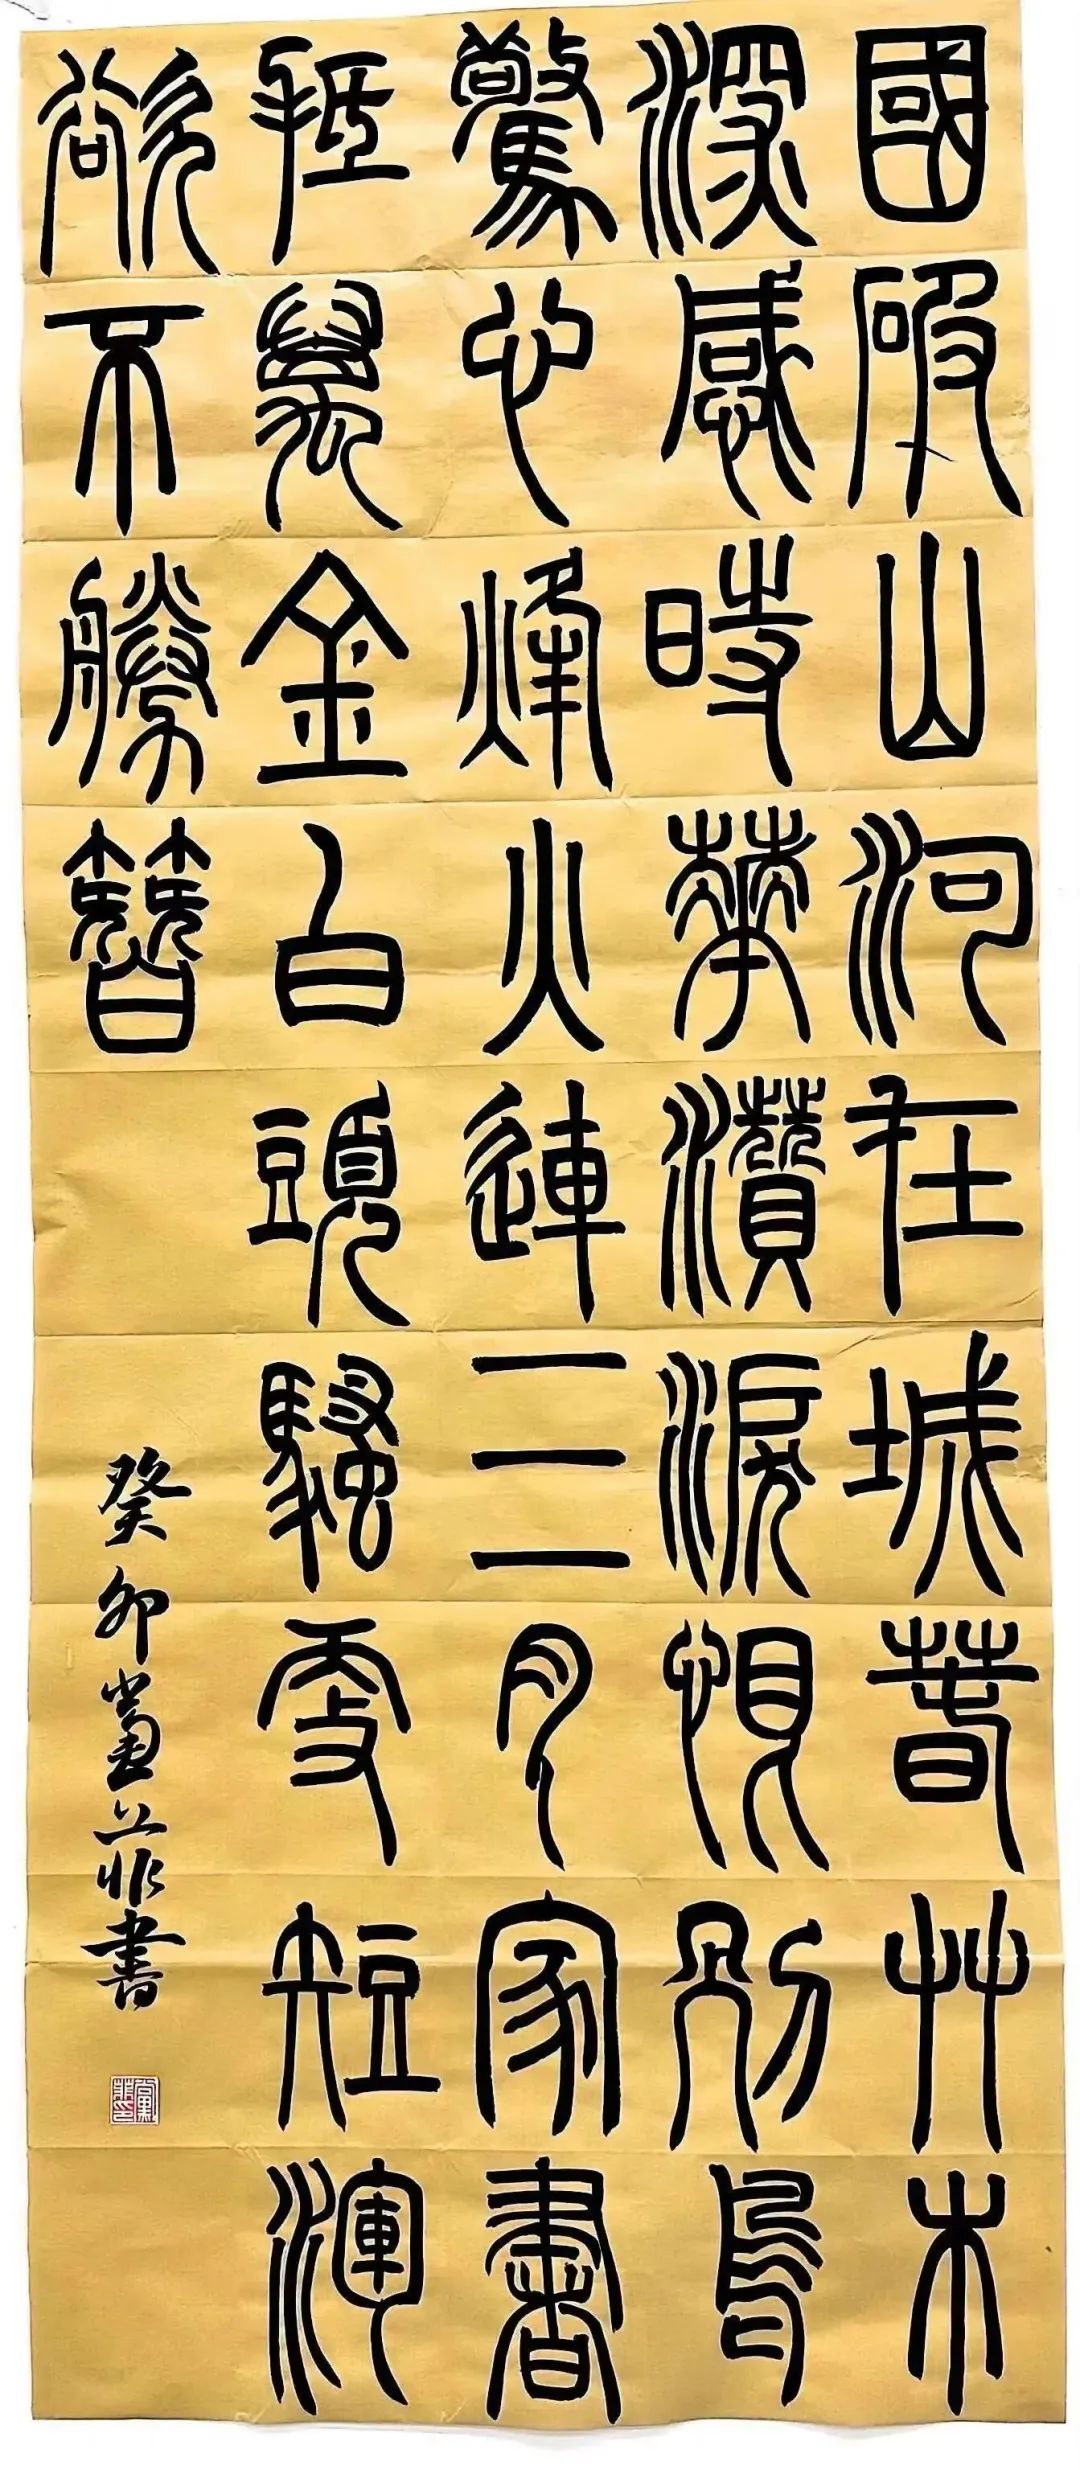 國破山河在城春艸木
深感時華濺淚恨別鳥
驚心烽火連三月家書
抵萬金白頭騷更短渾
欲不勝簪
癸卯黨菲書
黨菲印